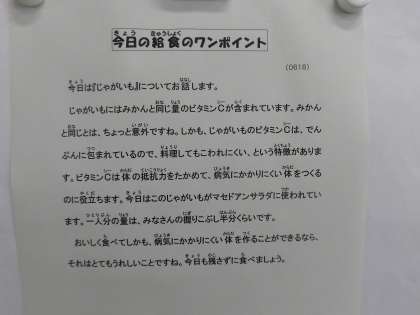 今日の給食のワンポイント
(0618)
今日は『じゃがいも』についてお話します。
じゃがいもにはみかんと同じ量のビタミンCが含まれています。みかん
と同じとは、ちょっと意外ですね。しかも、じゃがいものビタミンCは、でん
ぷんに包まれているので、料理してもこわれにくい、という特徴がありま
す。ビタミンCは体の抵抗力をたかめて、病気にかかりにくい体をつくる
のに役立ちます。今日はこのじゃがいもがマセドアンサラダに使われてい
ます。一人分の量は、みなさんの握りこぶし半分くらいです。
おいしく食べてしかも、病気にかかりにくい体を作ることができるなら、
それはとてもうれしいことですね。今日も残さずに食べましょう。